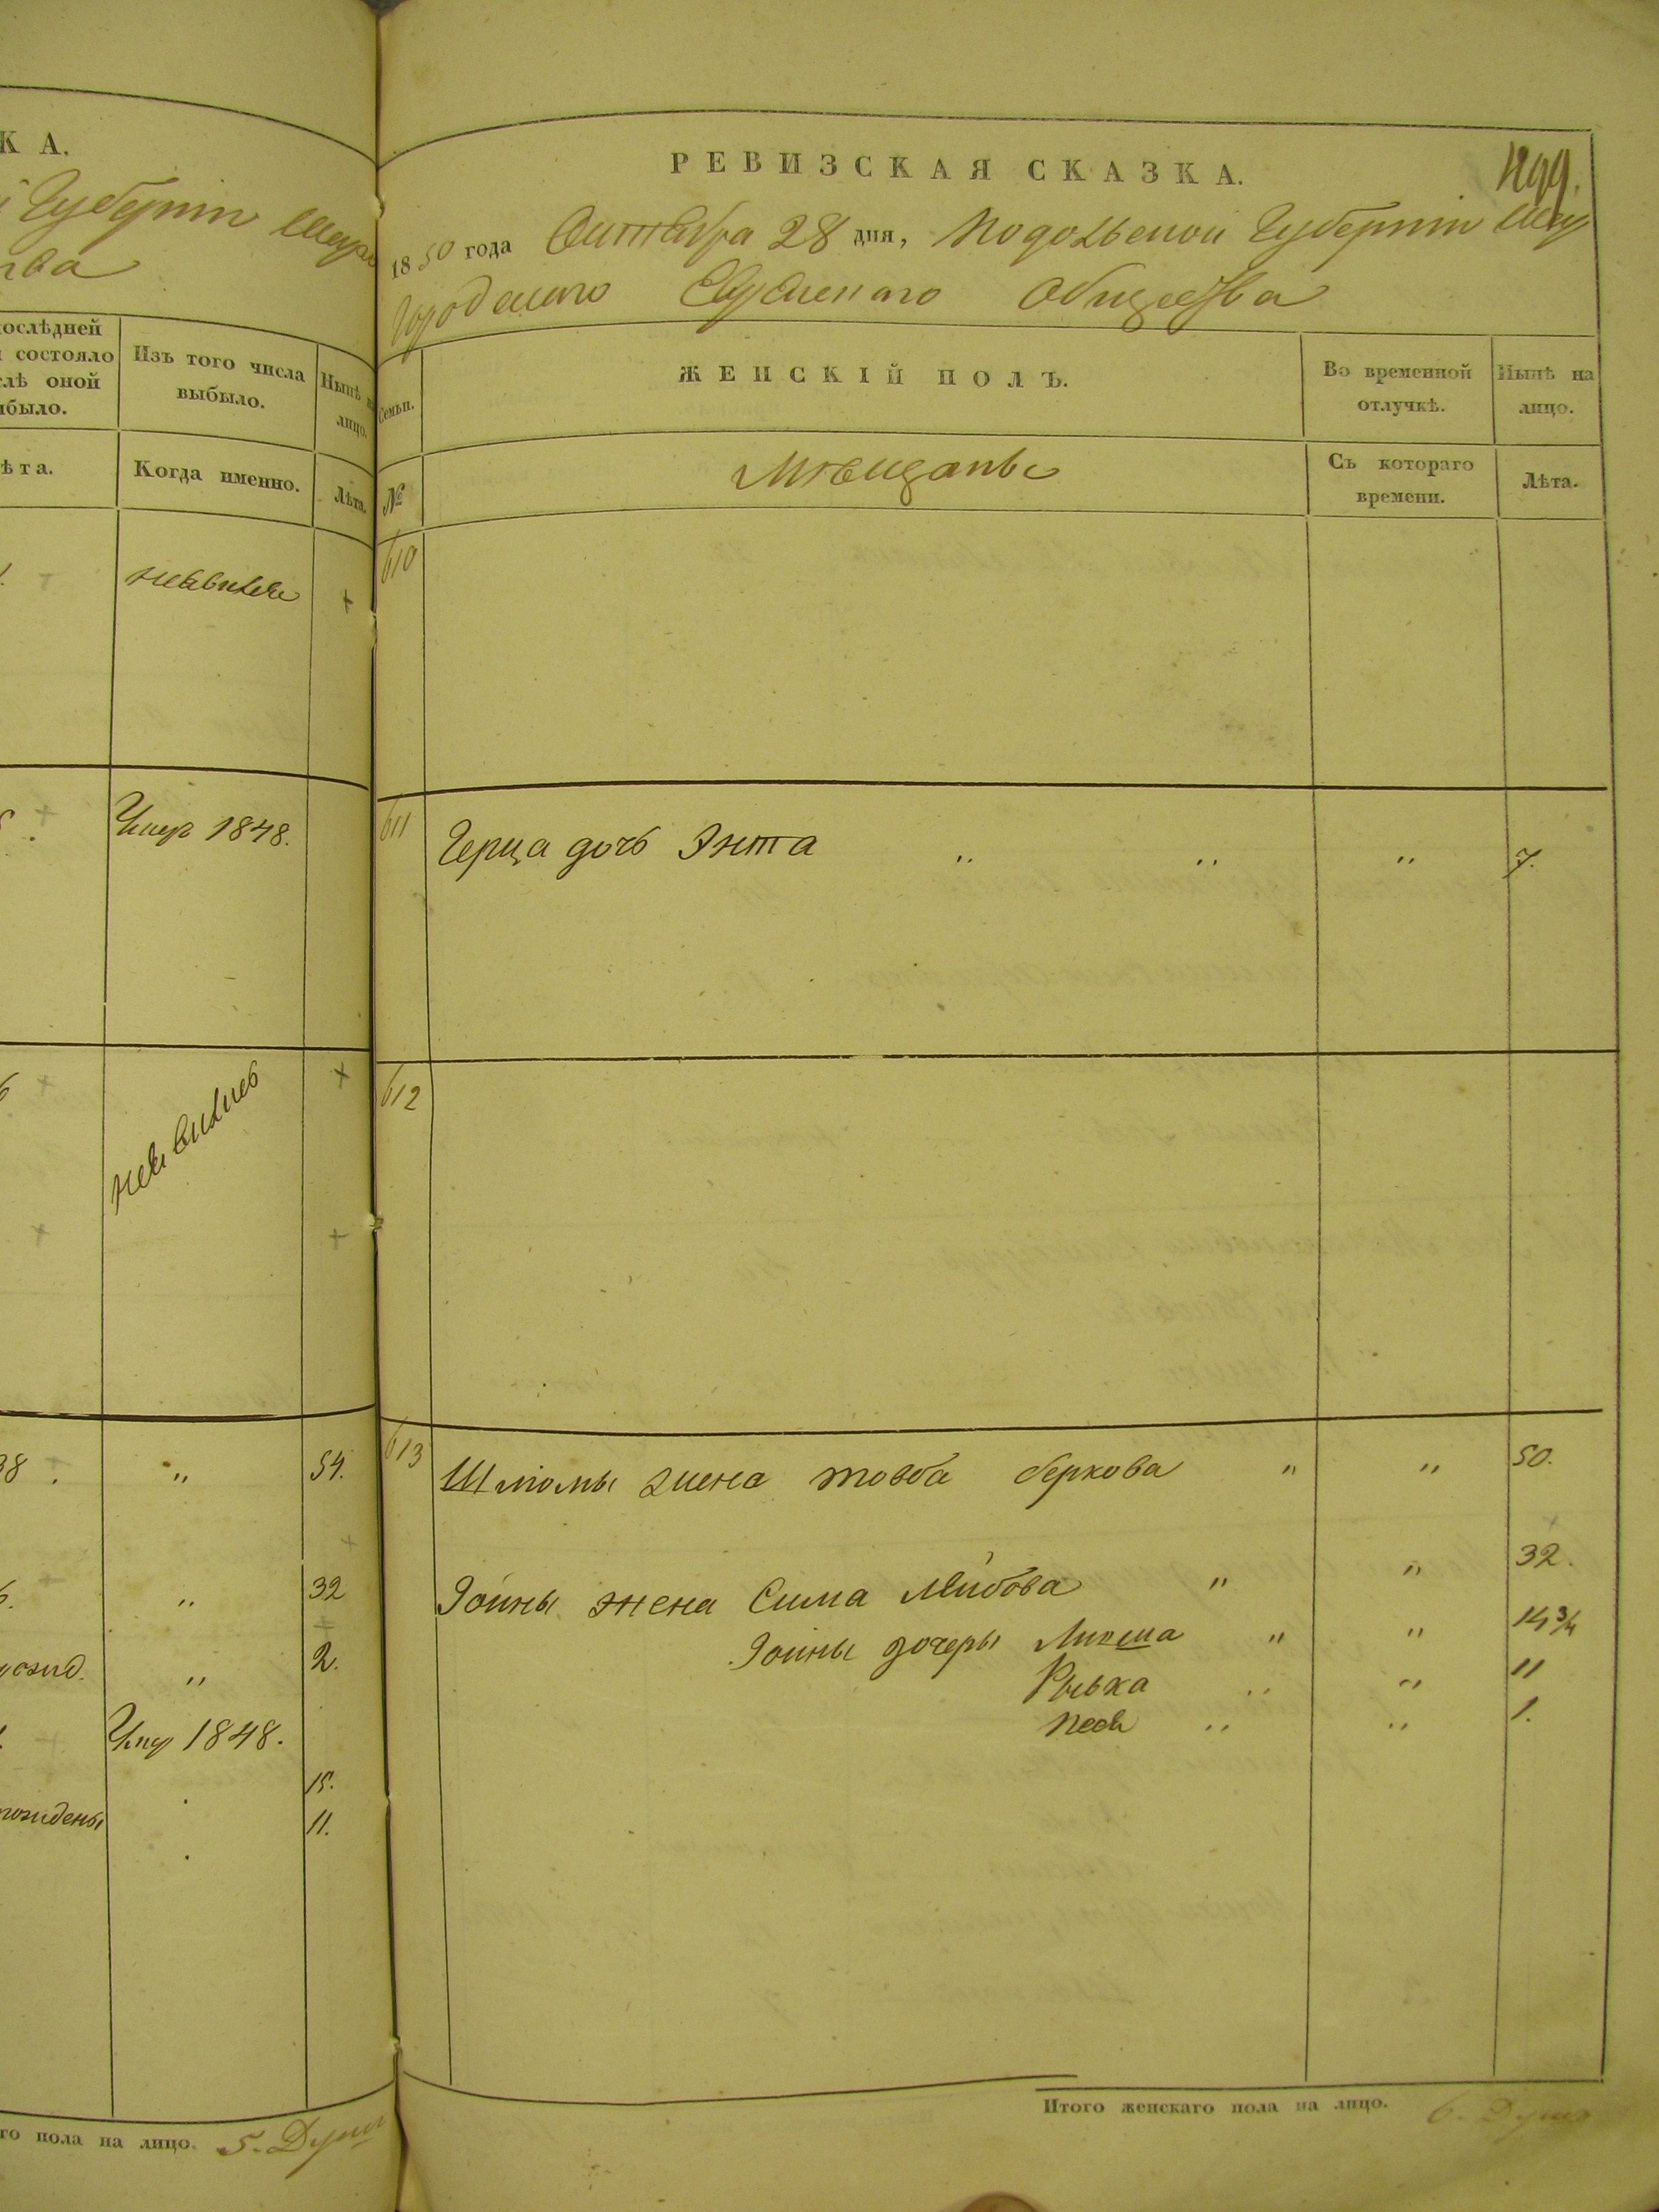 К А.
Губерніи Шар
тва
послѣдней
и состояло
слѣ оной
ибыло.
Изъ того числа
выбыло.
Нынѣ на
лицо.
ѣта.
Когда именно.
Лѣта.
неявился
+
Умеръ 1848.
неявились
+
+
38. " 54.
" 32
рожид. " 2.
Умер 1848.
15.
рождены 11.
го пола на лицо. 5. Душъ
РЕВИЗСКАЯ СКАЗКА.
1850 года Октября 28 дня, Подольской Губерніи Шар
городскаго Еврейскаго Общества
Семьи.
ЖЕНСКІЙ ПОЛЪ.
Во временной
отлучкѣ.
Нынѣ на
лицо.
№
Мѣщанъ
Съ котораго
времени.
Лѣта.
610
611 Герца дочь Энта " " " 7.
612
613 Шлiомы жена товба беркова " " 50.
Іойны жена Сима Лейбова " " 32.
Іойны дочеры " " 14¾
Рывка " " 11
Песя " " 1.
Итого женскаго пола на лицо. 6. Душъ